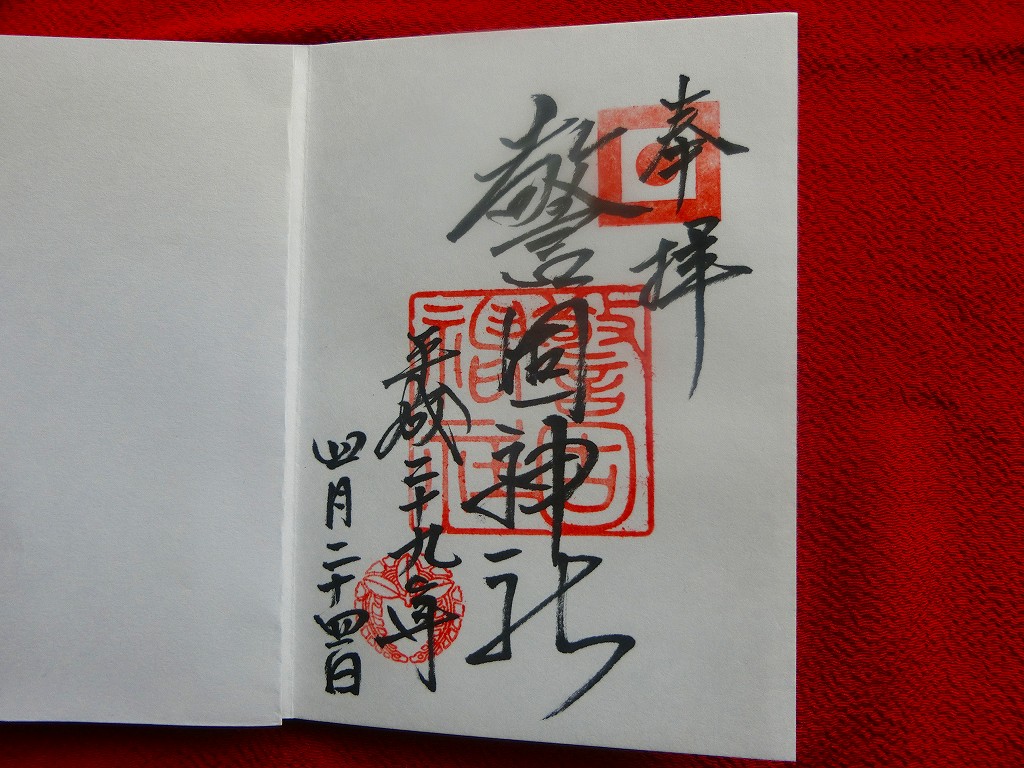 奉拝
警固神社
平成二十九年
四月二十四日
警固神社